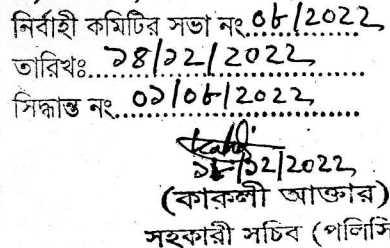 নির্বাহী কমিটির সভা নং ০৮/2022
তারিখঃ ১৪/১২/2022
সিদ্ধান্ত নং ০১/০৮/2022
১২/2022
(কাকলী আক্তার)
সহকারী সচিব (পলিসি